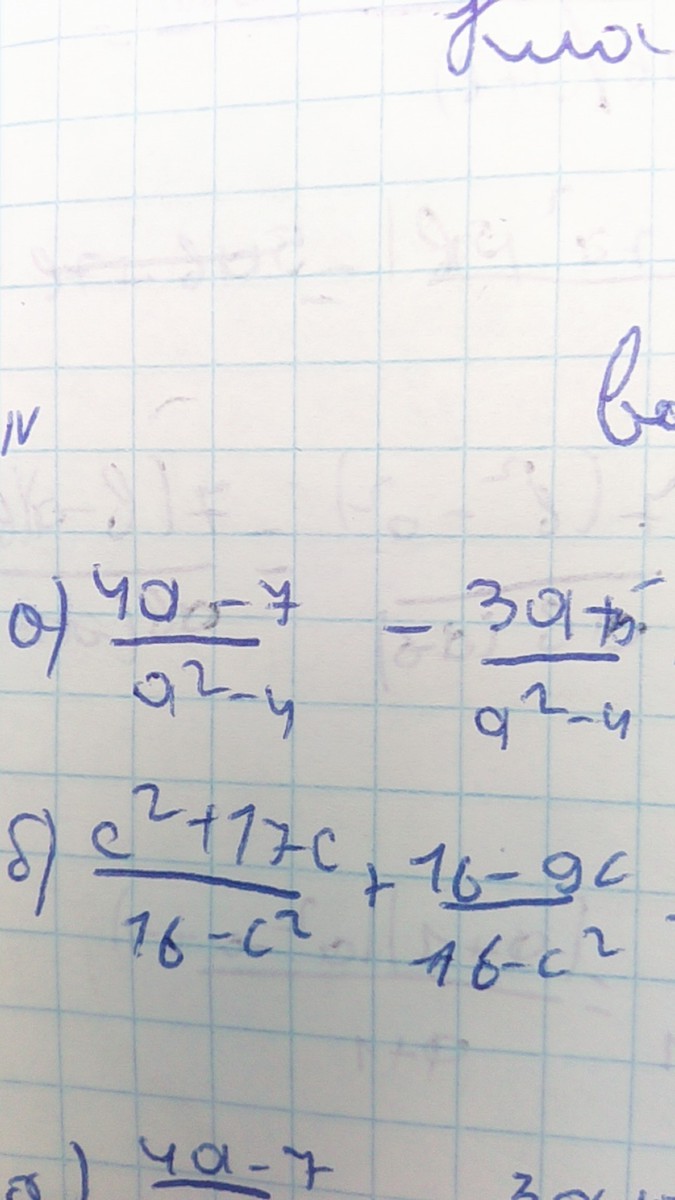 IV
а) 4a-7 / a²-4 - 3a+5 / a²-4
б) c²+17c / 16-c² + 16-9c / 16-c²
а) 4a-7